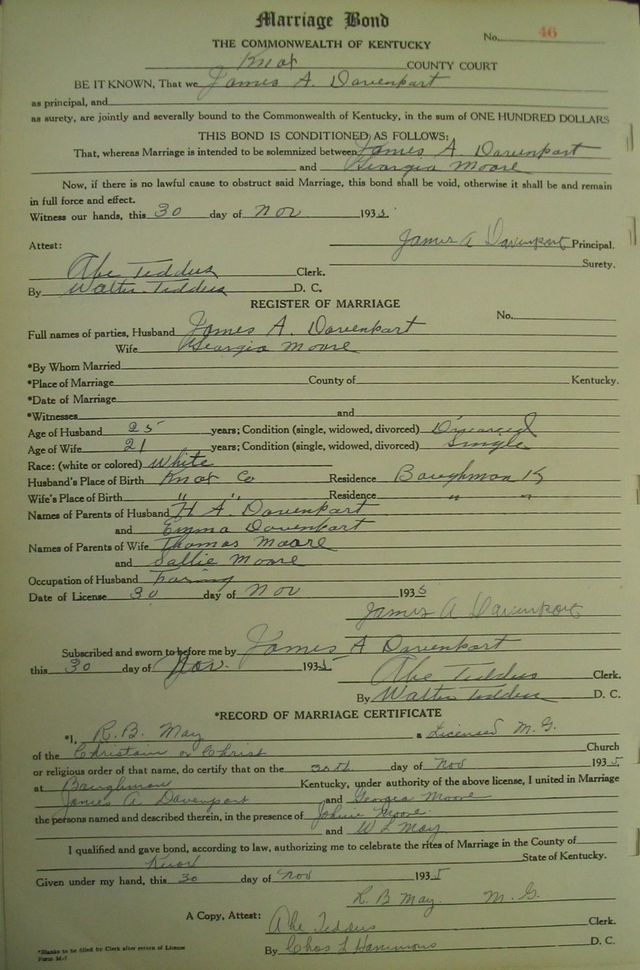 Marriage Bond
No. 46
THE COMMONWEALTH OF KENTUCKY
Knox COUNTY COURT
BE IT KNOWN, That we James A. Davenport
as principal, and
as surety, are jointly and severally bound to the Commonwealth of Kentucky, in the sum of ONE HUNDRED DOLLARS
THIS BOND IS CONDITIONED AS FOLLOWS:
That, whereas Marriage is intended to be solemnized between James A. Davenport
and Georgia Moore
Now, if there is no lawful cause to obstruct said Marriage, this bond shall be void, otherwise it shall be and remain
in full force and effect.
Witness our hands, this 30 day of Nov 1935.
Attest: James A Davenport Principal.
Surety.
Abe Teddus Clerk.
By Walter Teddus D. C.
REGISTER OF MARRIAGE
No.
Full names of parties, Husband James A. Davenport
Wife Georgia Moore
*By Whom Married
*Place of Marriage County of Kentucky.
*Date of Marriage
*Witnesses and
Age of Husband 25 years; Condition (single, widowed, divorced) Divorced
Age of Wife 21 years; Condition (single, widowed, divorced) Single
Race: (white or colored) White
Husband's Place of Birth Knox Co Residence Baughman Ky
Wife's Place of Birth " " Residence " "
Names of Parents of Husband H A. Davenport
and Emma Davenport
Names of Parents of Wife Thomas Moore
and Sallie Moore
Occupation of Husband
Date of License 30 day of Nov 1935
James A Davenport
Subscribed and sworn to before me by James A Davenport
this 30 day of Nov. 1935
Abe Teddus Clerk.
By Walter Teddus D. C.
*RECORD OF MARRIAGE CERTIFICATE
*I, R. B. May a Licensed M. G.
of the Christain or Christ Church
or religious order of that name, do certify that on the 30th day of Nov 1935
at Baughman Kentucky, under authority of the above license, I united in Marriage
James A Davenport and Georgia Moore
the persons named and described therein, in the presence of Moore
and W L May
I qualified and gave bond, according to law, authorizing me to celebrate the rites of Marriage in the County of
Knox State of Kentucky.
Given under my hand, this 30 day of Nov 1935
R. B May. M. G.
A Copy, Attest: Abe Teddus Clerk.
By Chas L Hammons D. C.
*Blanks to be filled by Clerk after return of License
Form M-1